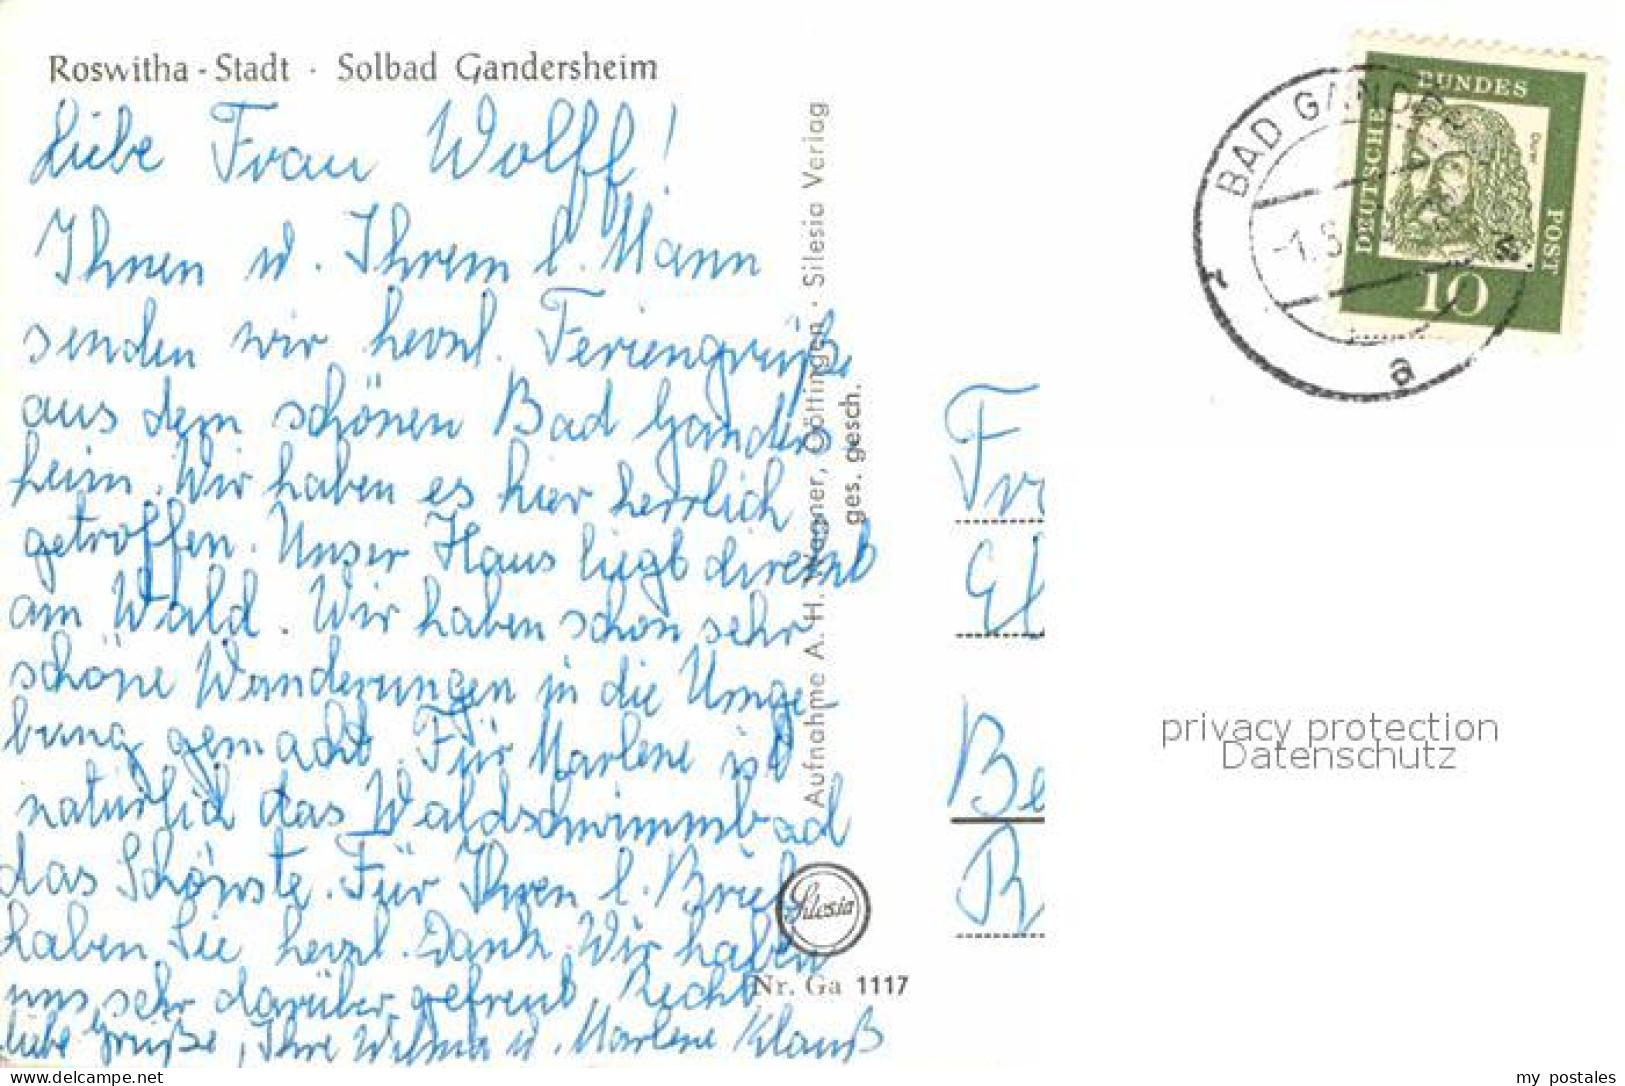 Roswitha - Stadt · Solbad Gandersheim
Liebe Frau Wolff!
Ihnen u. Ihrem l. Mann
senden wir herzl. Feriengrüße
aus dem schönen Bad Ganders
heim. Wir haben es hier herrlich
getroffen. Unser Haus liegt direkt
am Wald. Wir haben schon sehr
schöne Wanderungen in die Umge-
bung gemacht. Für Marlene ist
natürlich das Waldschwimmbad
das Schönste. Für Ihren l. Brief
haben Sie herzl. Dank. Wir haben
uns sehr darüber gefreut. Recht
liebe Grüße, Ihre Wilma u. Marlene Klauß
Aufnahme A. H. Wagner, Göttingen · Silesia Verlag
ges. gesch.
Silesia
Nr. Ga 1117
BAD GANDER
-1. 8
a
DEUTSCHE
BUNDES
POST
Dürer
10
Fr
El
Be
R
privacy protection
Datenschutz
www.delcampe.net
my_postales